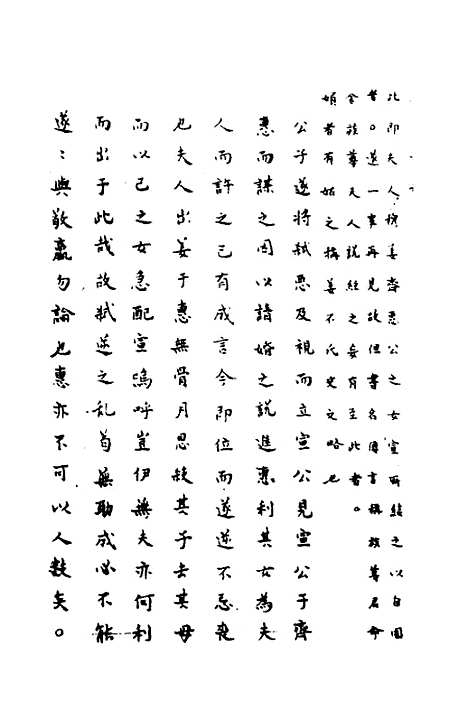 此即夫人婦姜齊惠公之女宣所結之以自固
者。遂一事再見故但書名傳言稱族尊君命
舍族尊夫人說經之妄有至此者。
婦者有姑之稱姜不氏史文略也
公子遂將弒惡及視而立宣公見宣公于齊
惠而謀之因以請婚之說進惠利其女為夫
人而許之已有成言今即位而遂逆不忌喪
也夫人出姜于惠無骨月思殺其子去其母
而以己之女急配宣嗚呼豈伊無夫亦何利
而出于此哉故弒逆之亂苟無助成必不能
遂:與敬嬴勿論也惠亦不可以人數矣。